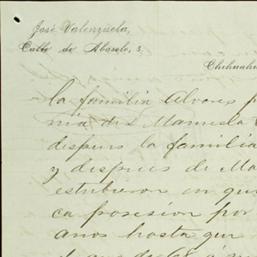 José Valenzuela,
Calle de Abasolo, 3.
Chihuahu
la familia Alvares
Manuela
despues la familia
y despues de Ma
estubieron en
ca posesion por
anos hasta que